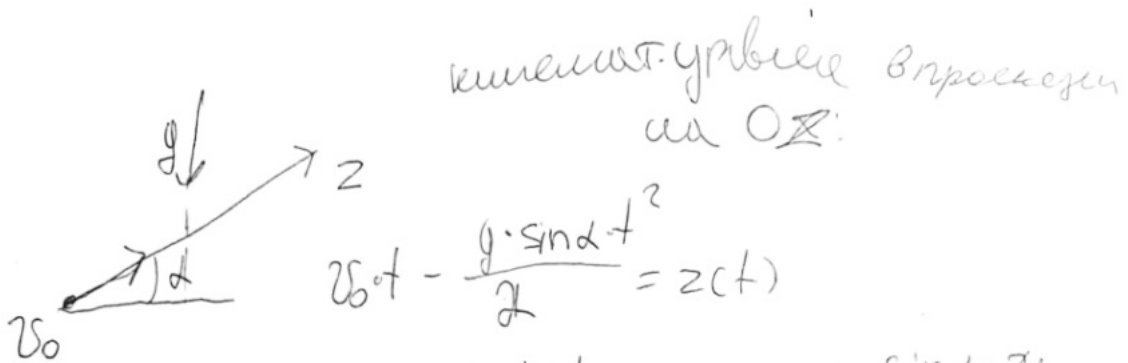 кинемат. ур-ние в проекции
на OZ:
g
z
α
v₀
v₀·t - (g·sinα·t²)/2 = z(t)